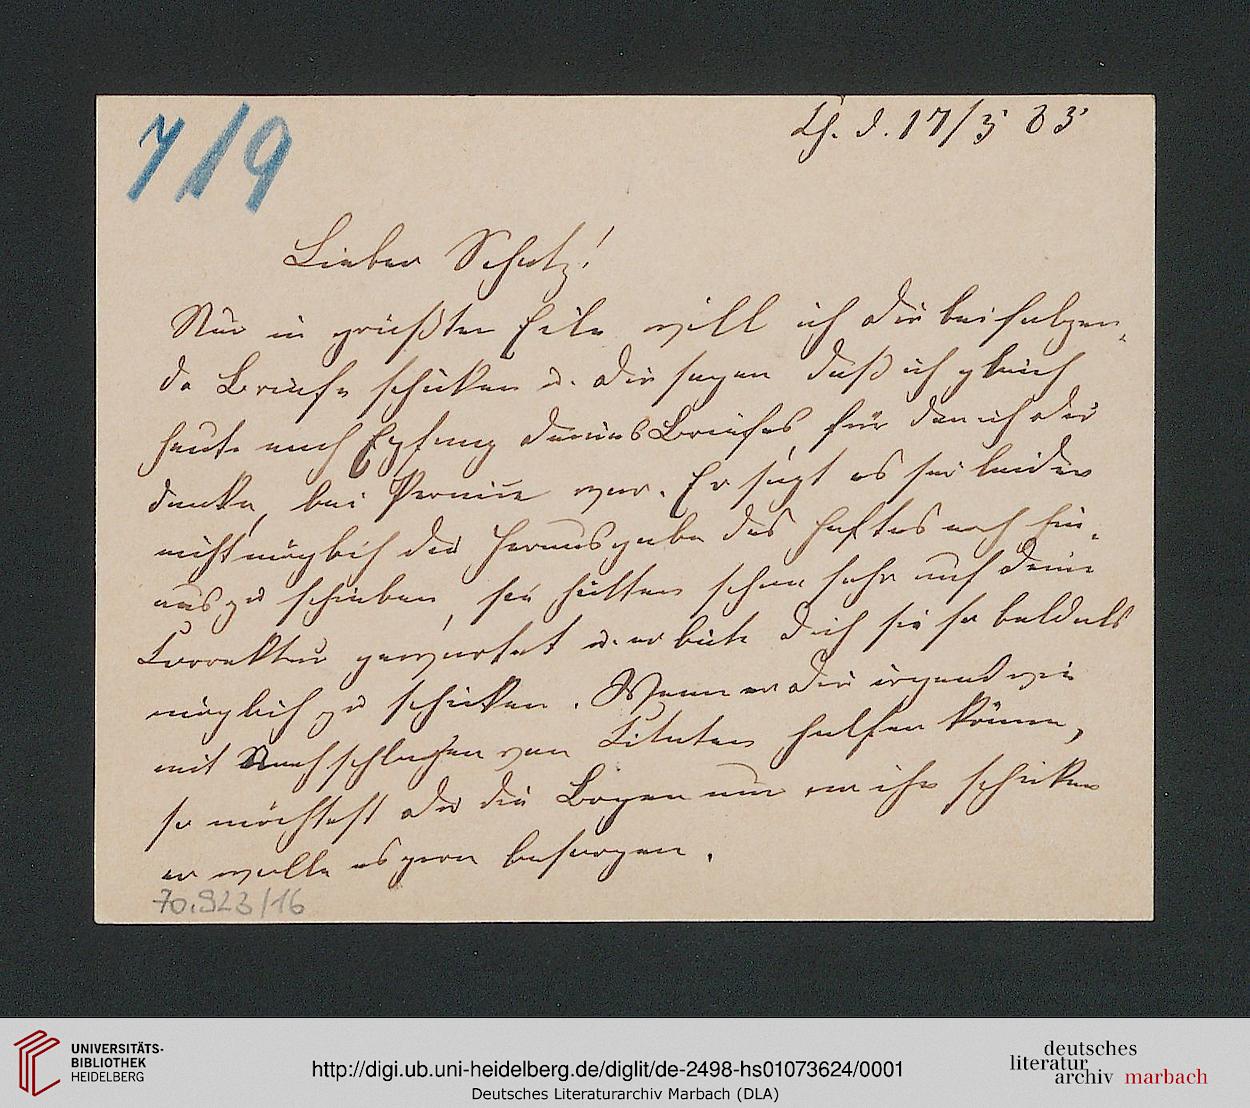 7/9
Ch. d. 17/3 83
Lieber Schatz!
Nur in größter Eile will ich dir beifolgen-
de Briefe schicken u. dir sagen daß ich gleich
heute nach Epfang deines Briefes für den ich dir
danke, bei Pernice war. Er sagt es sei leider
nicht möglich die Herausgabe des Heftes noch hin-
aus zu schieben, sie hätten schon sehr auf deine
Correktur gewartet u. er bäte dich sie so bald als
möglich zu schicken. Wenn er dir irgend wie
mit Nachschlagen von Citaten helfen könne,
so möchtest du die Bogen nur an ihn schicken
er wolle es gern besorgen.
70.923/16
UNIVERSITÄTS-
BIBLIOTHEK
HEIDELBERG
http://digi.ub.uni-heidelberg.de/diglit/de-2498-hs01073624/0001
Deutsches Literaturarchiv Marbach (DLA)
deutsches
literatur
archiv marbach